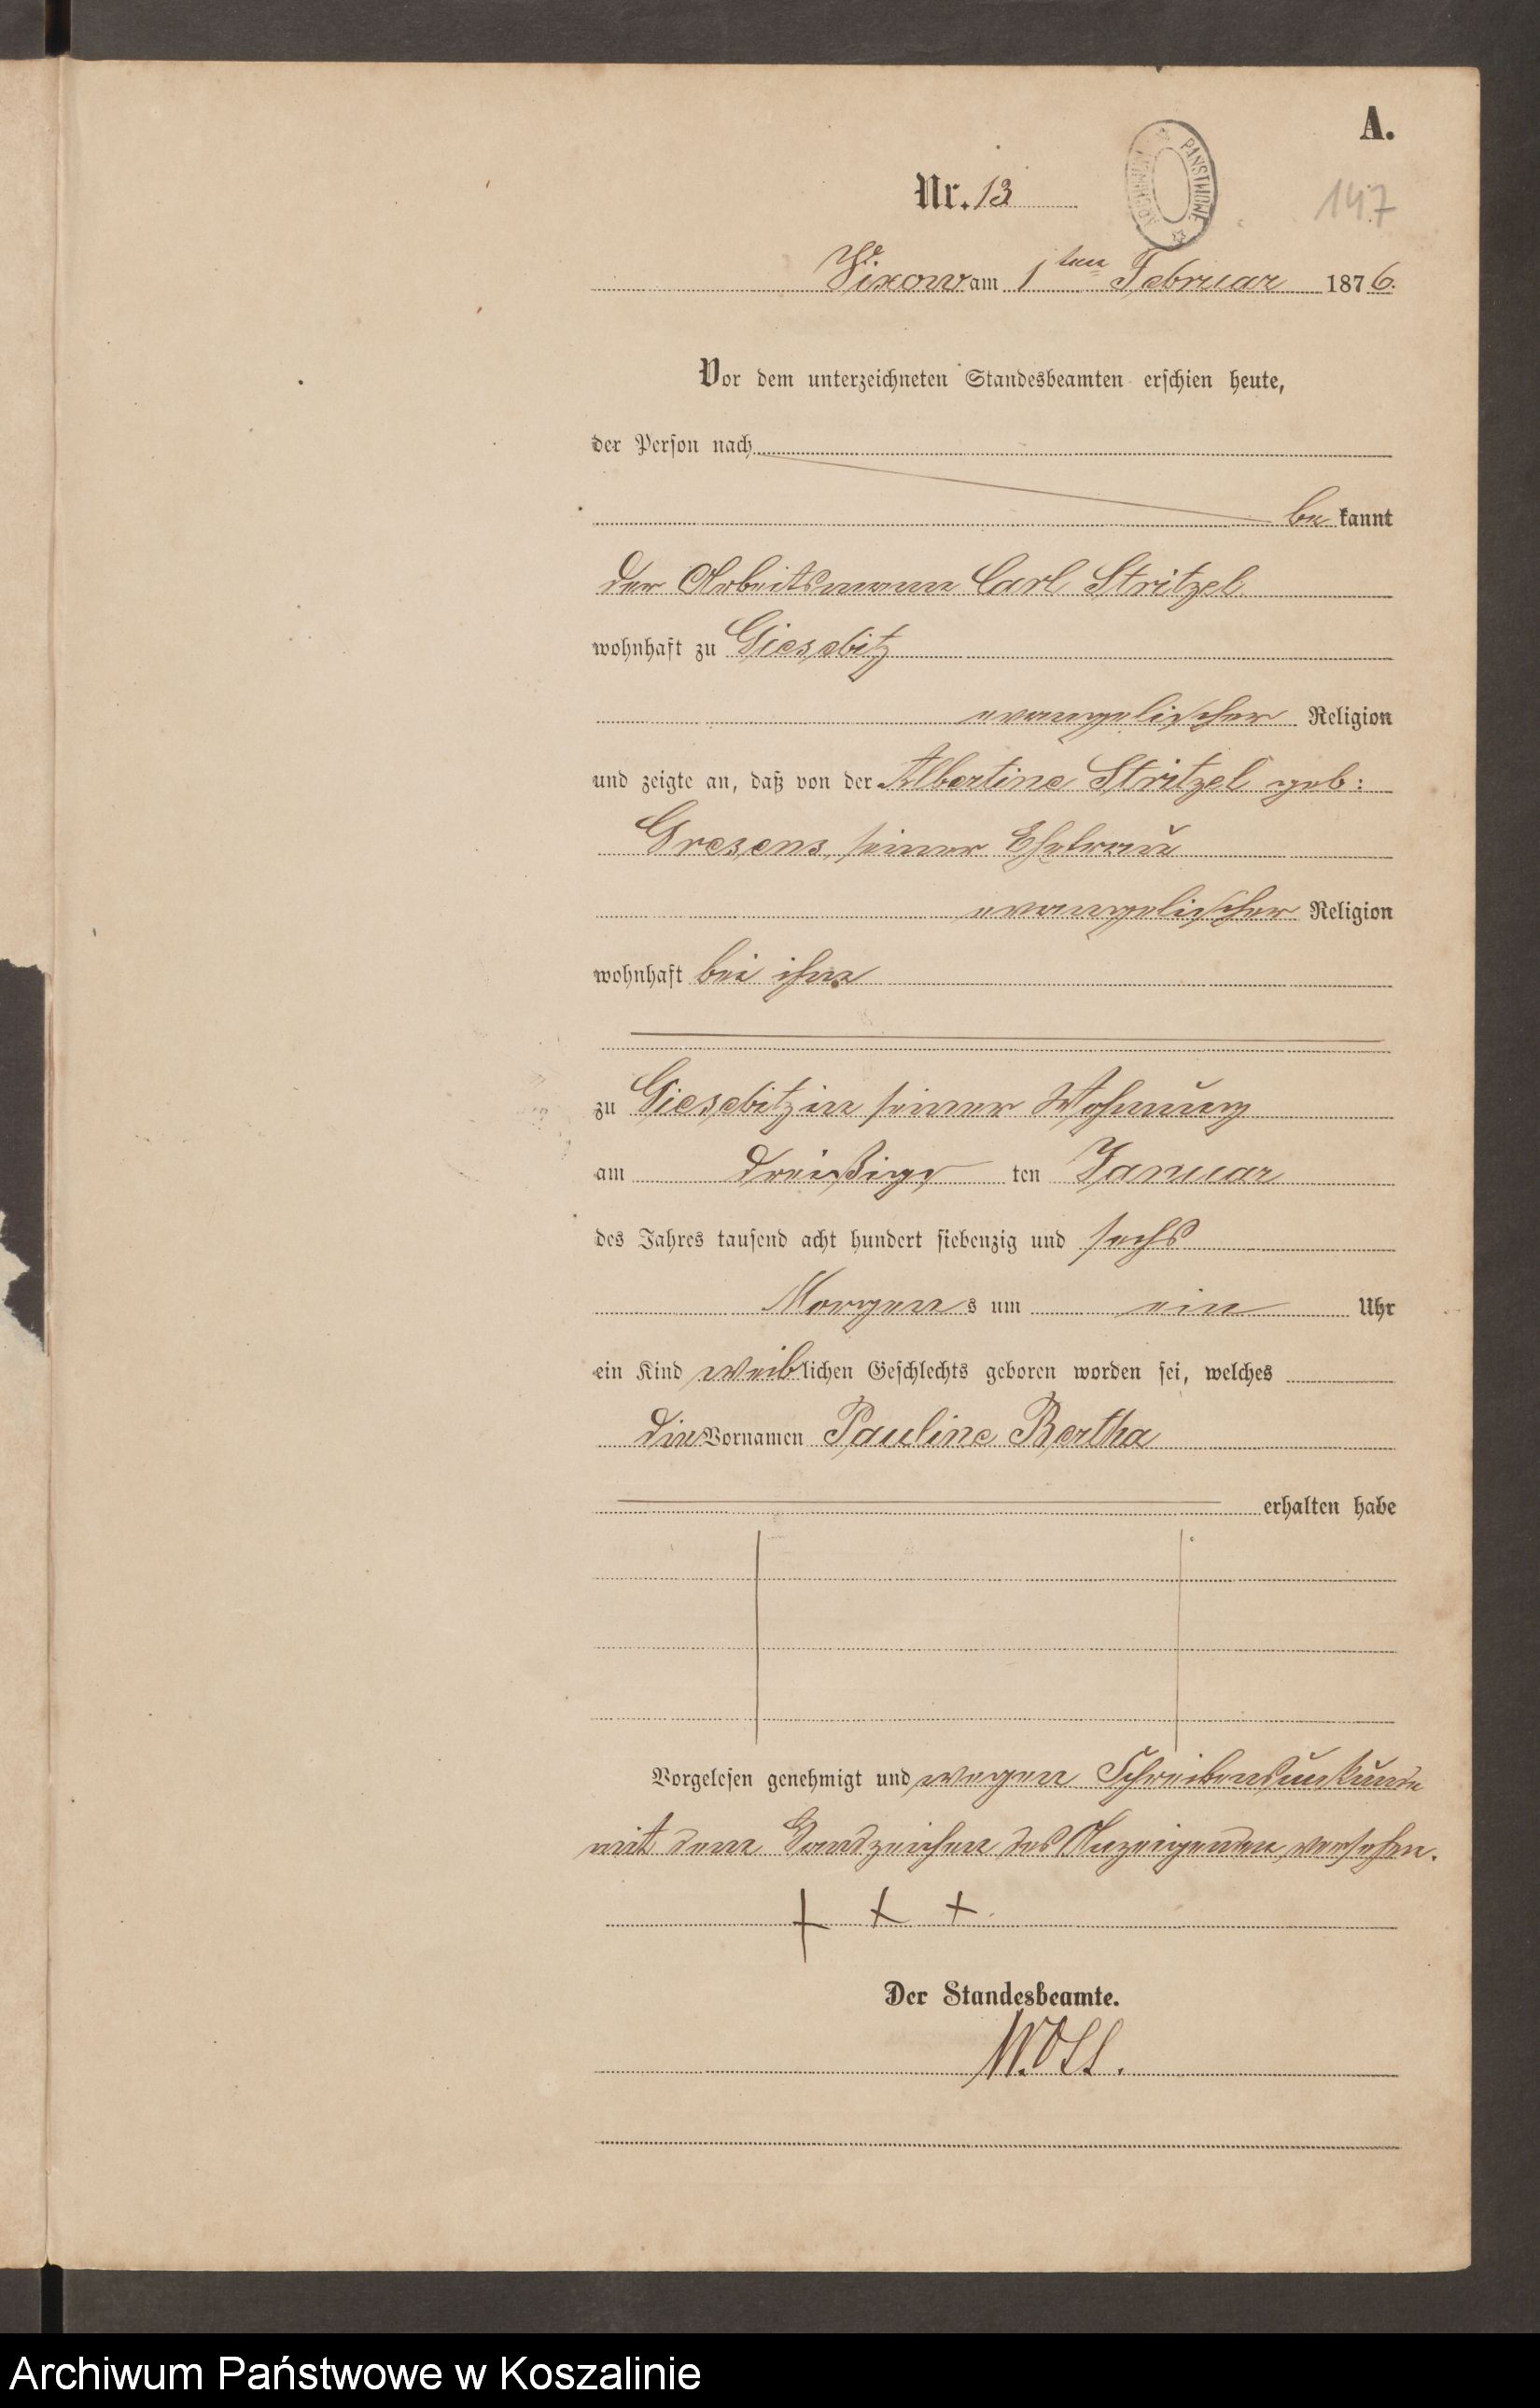 A.
Nr. 13
PANSTWOWE
147
Vixow am 1ten Februar 1876.
Vor dem unterzeichneten Standesbeamten erschien heute,
der Person nach
be kannt
der Arbeitsmann Carl Stritzel
wohnhaft zu Giesebitz
evangelischer Religion
und zeigte an, daß von der Albertine Stritzel geb:
Gresens, seiner Ehefrau
evangelischer Religion
wohnhaft bei ihm
zu Giesebitz in seiner Wohnung
am dreißigs ten Januar
des Jahres tausend acht hundert siebenzig und sechs
Morgens um ein Uhr
ein Kind weiblichen Geschlechts geboren worden sei, welches
die Vornamen Pauline Bertha
erhalten habe
Vorgelesen genehmigt und wegen Schreibensunkunde
mit dem Handzeichen des Anzeigenden versehen.
+ + +
Der Standesbeamte.
Archiwum Państwowe w Koszalinie